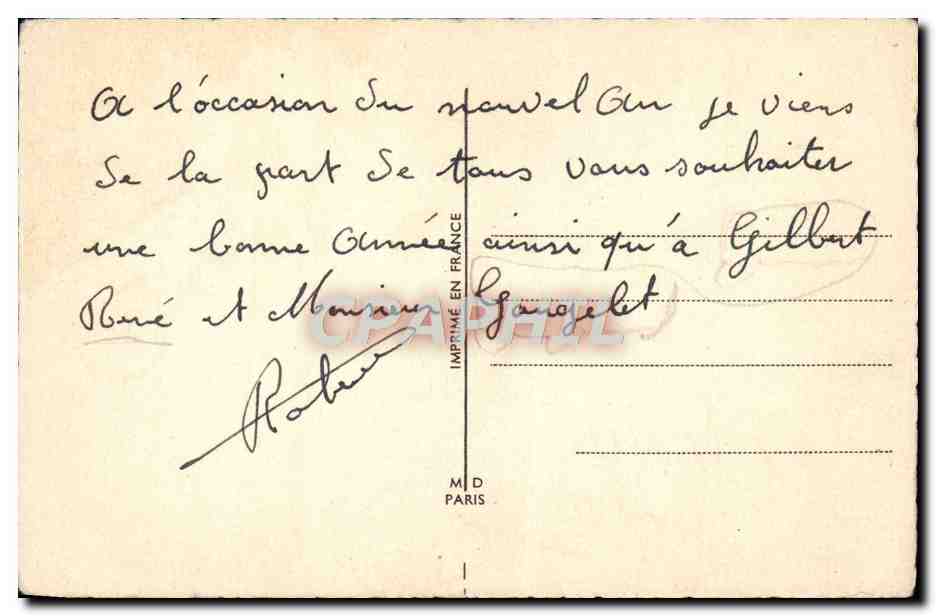 A l'occasion du nouvel An je viens
de la part de tous vous souhaiter
une bonne Année ainsi qu'à Gilbert
René et Monsieur Gaugelet
CPAPHIL
IMPRIMÉ EN FRANCE
M D
PARIS